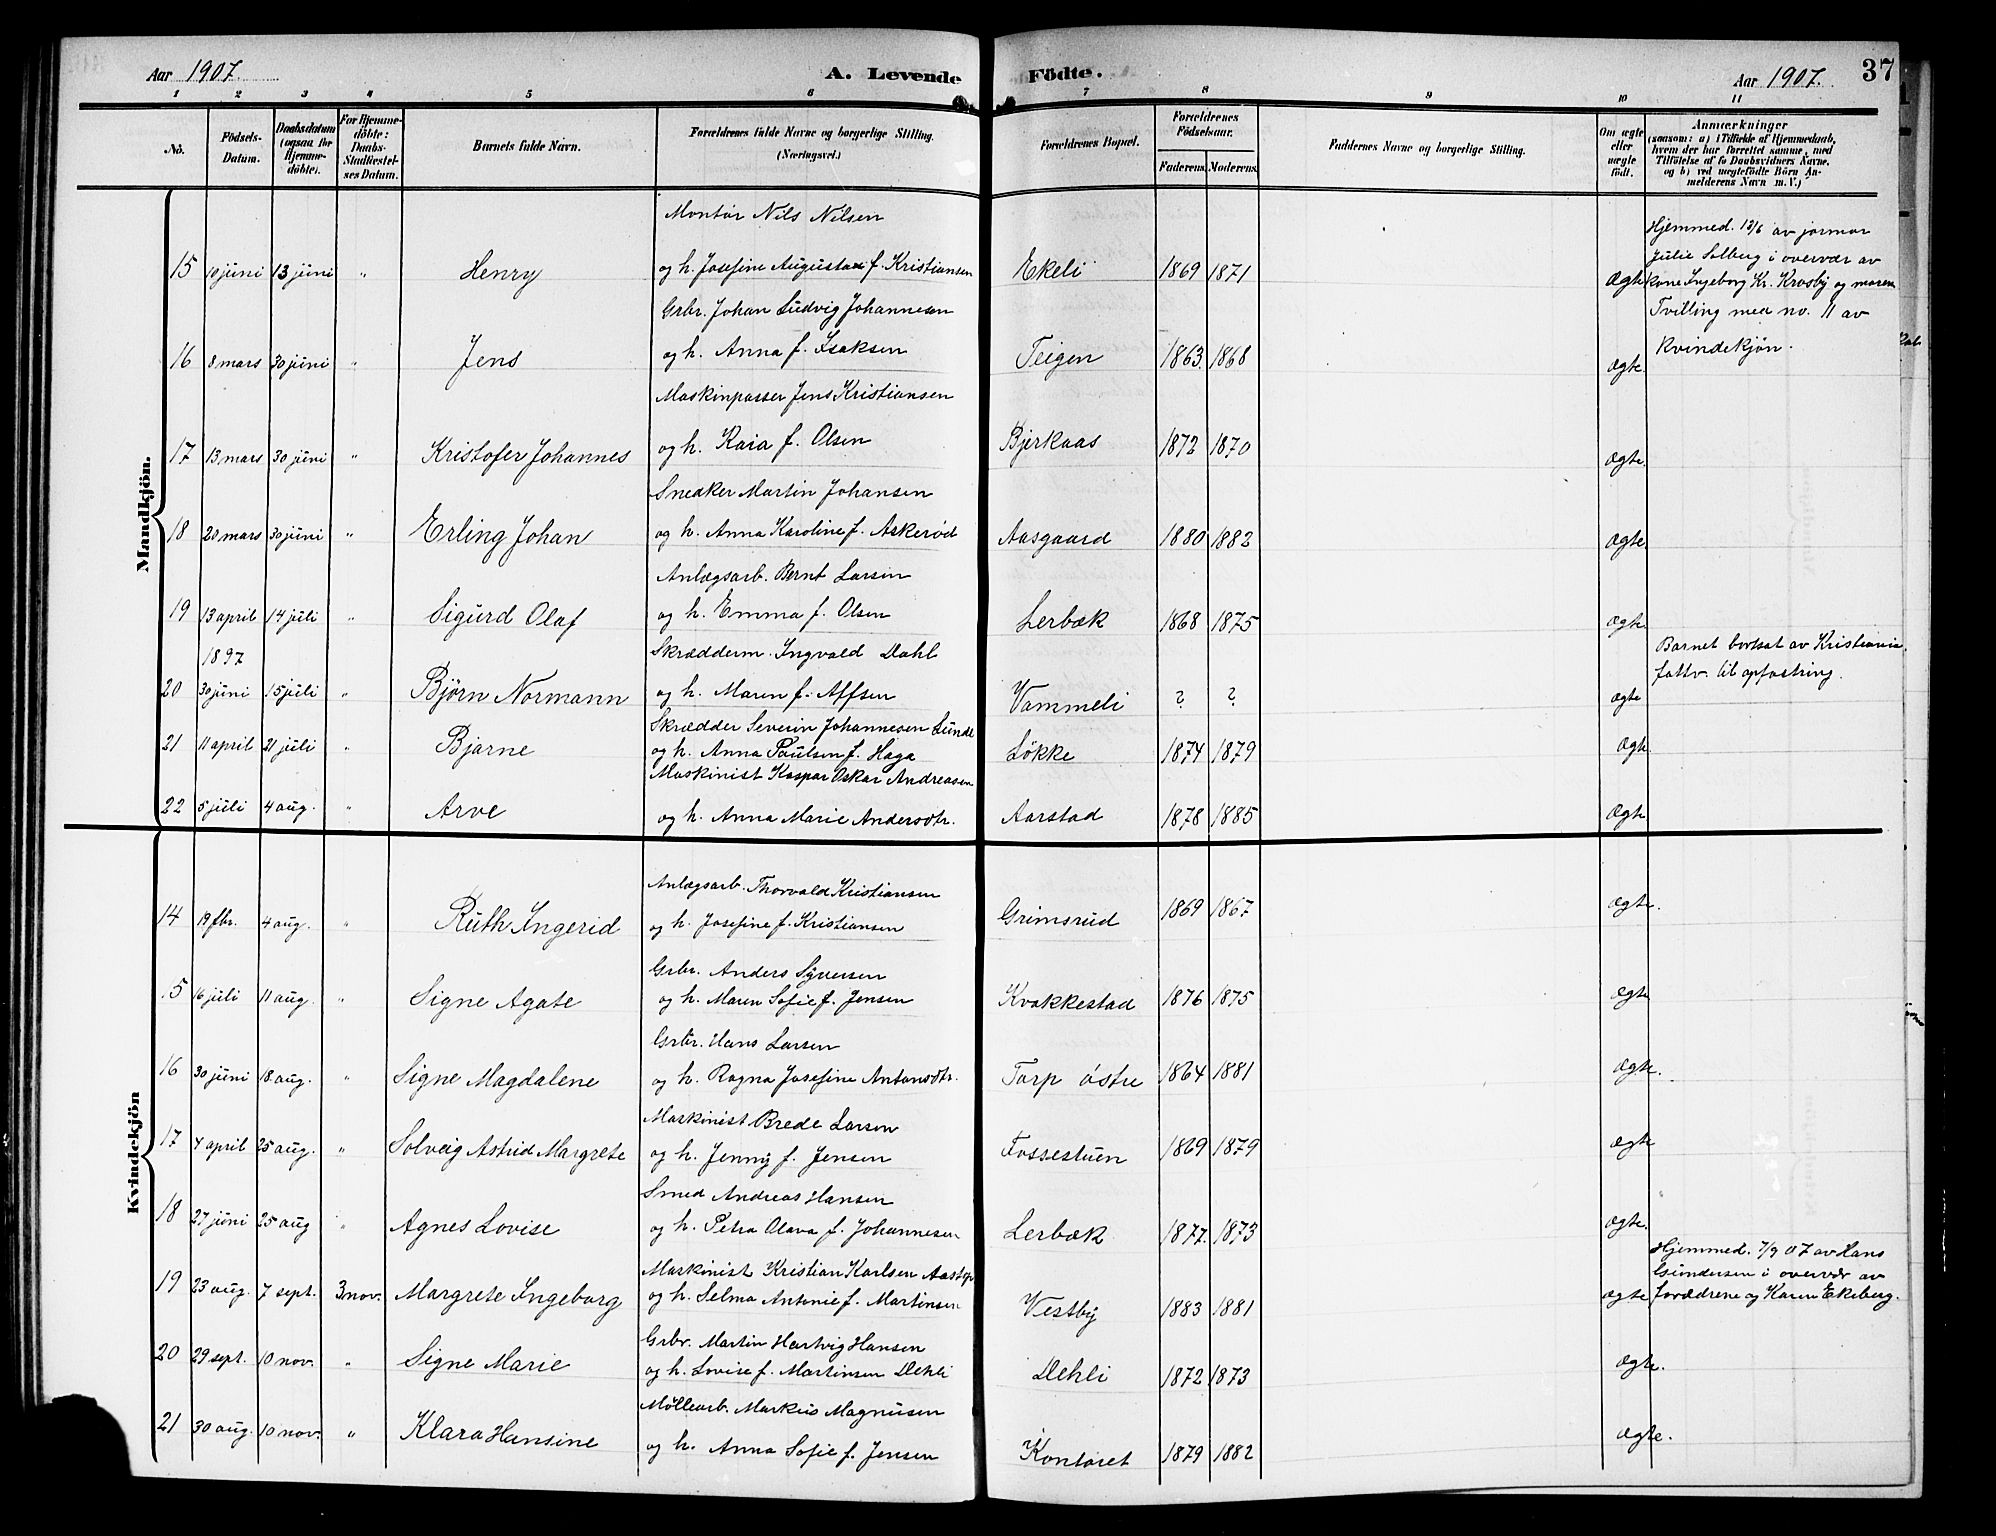 Aar 1907.
A. Levende Födte.
Aar 1907.
37
1 2 3 4 5 6 7 8 9 10 11
No.
Födsels-Datum.
Daabsdatum (ogsaa for Hjemmedöbte).
For Hjemmedöbte: Daabs-Stadfæstelses Datum.
Barnets fulde Navn.
Forældrenes fulde Navne og borgerlige Stilling. (Næringsvei.)
Forældrenes Bopæl.
Forældrenes Födselsaar.
Faderens. Moderens.
Faddernes Navne og borgerlige Stilling.
Om ægte eller uægte født.
Anmærkninger
(saasom: a) i Tilfælde af Hjemmedaab, hvem der har forrettet samme, med Tilföielse af to Daabsvidners Navne, og b) ved uægtefödte Börn Anmelderens Navn m. V.)
Mandkjön.
Montør Nils Nilsen
15 10 juni 13 juni " Henry og h. Josefine Augusta f. Kristiansen Ekeli 1869 1871 ægte
Hjemmed. 13/6 av jormor
Julie Solberg i overvær av
kone Ingeborg Kr. Krosby og moren
Grbr. Johan Ludvig Johannesen
16 8 mars 30 juni " Jens og h. Anna f. Isaksen Teigen 1863. 1868 ægte.
Tvilling med no. 11 av
kvindekjön.
Maskinpasser Jens Kristiansen
17 13 mars 30 juni " Kristofer Johannes og h. Kaia f. Olsen Bjerkaas 1872 1870 ægte.
Snedker Martin Johansen
18 20 mars 30 juni " Erling Johan og h. Anna Karoline f. Askerød Aasgaard 1880 1882 ægte.
Anlægsarb. Bernt Larsen
19 13 april 14 juli " Sigurd Olaf og h. Emma f. Olsen Lerbæk 1868 1875 ægte
1897 Skrædderm. Ingvald Dahl
20 30 juni 15 juli " Björn Normann og h. Maren f. Affsen Vammeli ? ? ægte
Barnet bortsat av Kristiania
fattv. til opfostring.
Skrædder Severin Johannesen Lunde
21 11 april 21 juli " Bjarne og h. Anna Paulsen f. Haga Løkke 1874 1879 ægte
Maskinist Kaspar Oskar Andreasen
22 5 juli 4 aug. " Arve og h. Anna Marie Andersdtr. Aarstad 1878 1885 ægte
Kvindekjön
Anlægsarb. Thorvald Kristiansen
14 19 fbr. 4 aug. " Ruth Ingerid og h. Josefine f. Kristiansen Grimsrud 1869 1867 ægte.
Grbr. Anders Syversen
15 16 juli 11 aug. " Signe Agate og h. Maren Sofie f. Jensen Kvakkestad 1876 1875 ægte
Grbr. Hans Larsen
16 30 juni 18 aug. " Signe Magdalene og h. Ragna Josefine Antonsdtr. Torp østre 1864 1881 ægte.
Maskinist Brede Larsen
17 4 april 25 aug. " Solveig Astrid Margrete og h. Jenny f. Jensen Fossestuen 1869 1879 ægte
Smed Andreas Hansen
18 27 juni 25 aug " Agnes Lovise og h. Petra Olava f. Johannesen Lerbæk 1877. 1873 ægte.
Maskinist Kristian Karlsen
19 23 aug. 7 sept. 3 nov. Margrete Ingeborg og h. Selma Antonie f. Martinsen Vestby 1883 1881 ægte
Hjemmed. 7/9 07 av Hans
Gundersen i overvær av
forældrene og Karen Ekeberg.
Grbr. Martin Hartvig Hansen
20 29 sept. 10 nov. " Signe Marie og h. Lovise f. Martinsen Dehli Dehli 1872 1873 ægte.
Møllearb. Markus Magnusen
21 30 aug. 10 nov. " Klara Hansine og h. Anna Sofie f. Jensen Kontoret 1879 1882 ægte.